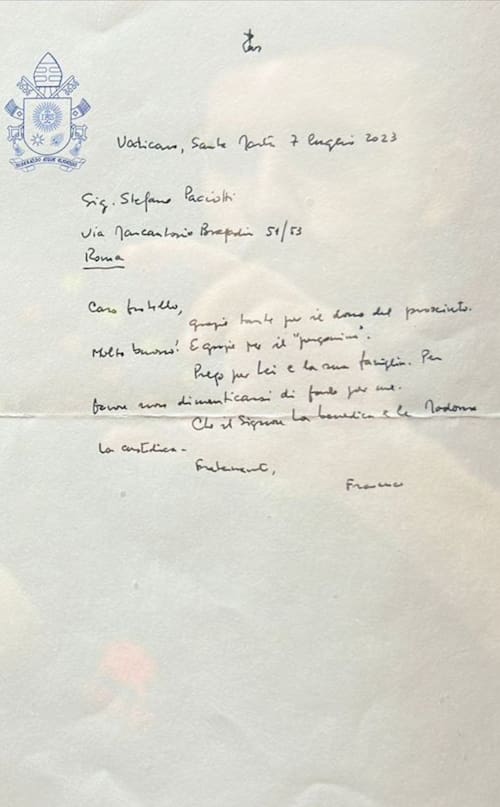 MISERANDO ATQUE ELIGENDO
Vaticano, Santa Marta 7 luglio 2023
Sig. Stefano Paciotti
Via Marcantonio 51/53
Roma
Caro fratello,
grazie tante per il dono del prosciutto.
Molto buono! E grazie per il
Prego per Lei e la sua famiglia. Per
favore non dimenticarsi di farlo per me.
Che il Signore La benedica e la Madonna
La custodisca.
Fraternamente,
Francesco